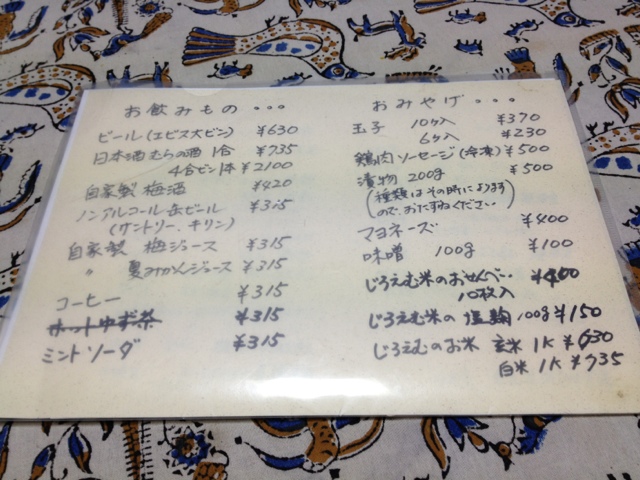 お飲みもの・・・
ビール(エビス大ビン) ¥630
日本酒むらの酒 1合 ¥735
4合ビン1本 ¥2100
自家製 梅酒 ¥420
ノンアルコール缶ビール ¥315
(サントリー、キリン)
自家製 梅ジュース ¥315
〃 夏みかんジュース ¥315
コーヒー ¥315
ホットゆず茶 ¥315
ミントソーダ ¥315
おみやげ・・・
玉子 10ケ入 ¥370
6ケ入 ¥230
鶏肉ソーセージ(冷凍) ¥500
漬物 200g ¥500
(種類はその時によります
ので、おたずねください)
マヨネーズ ¥400
味噌 100g ¥100
じろえむ米のおせんべい ¥400
10枚入
じろえむ米の塩麹 100g ¥150
じろえむのお米 玄米 1K ¥630
白米 1K ¥735